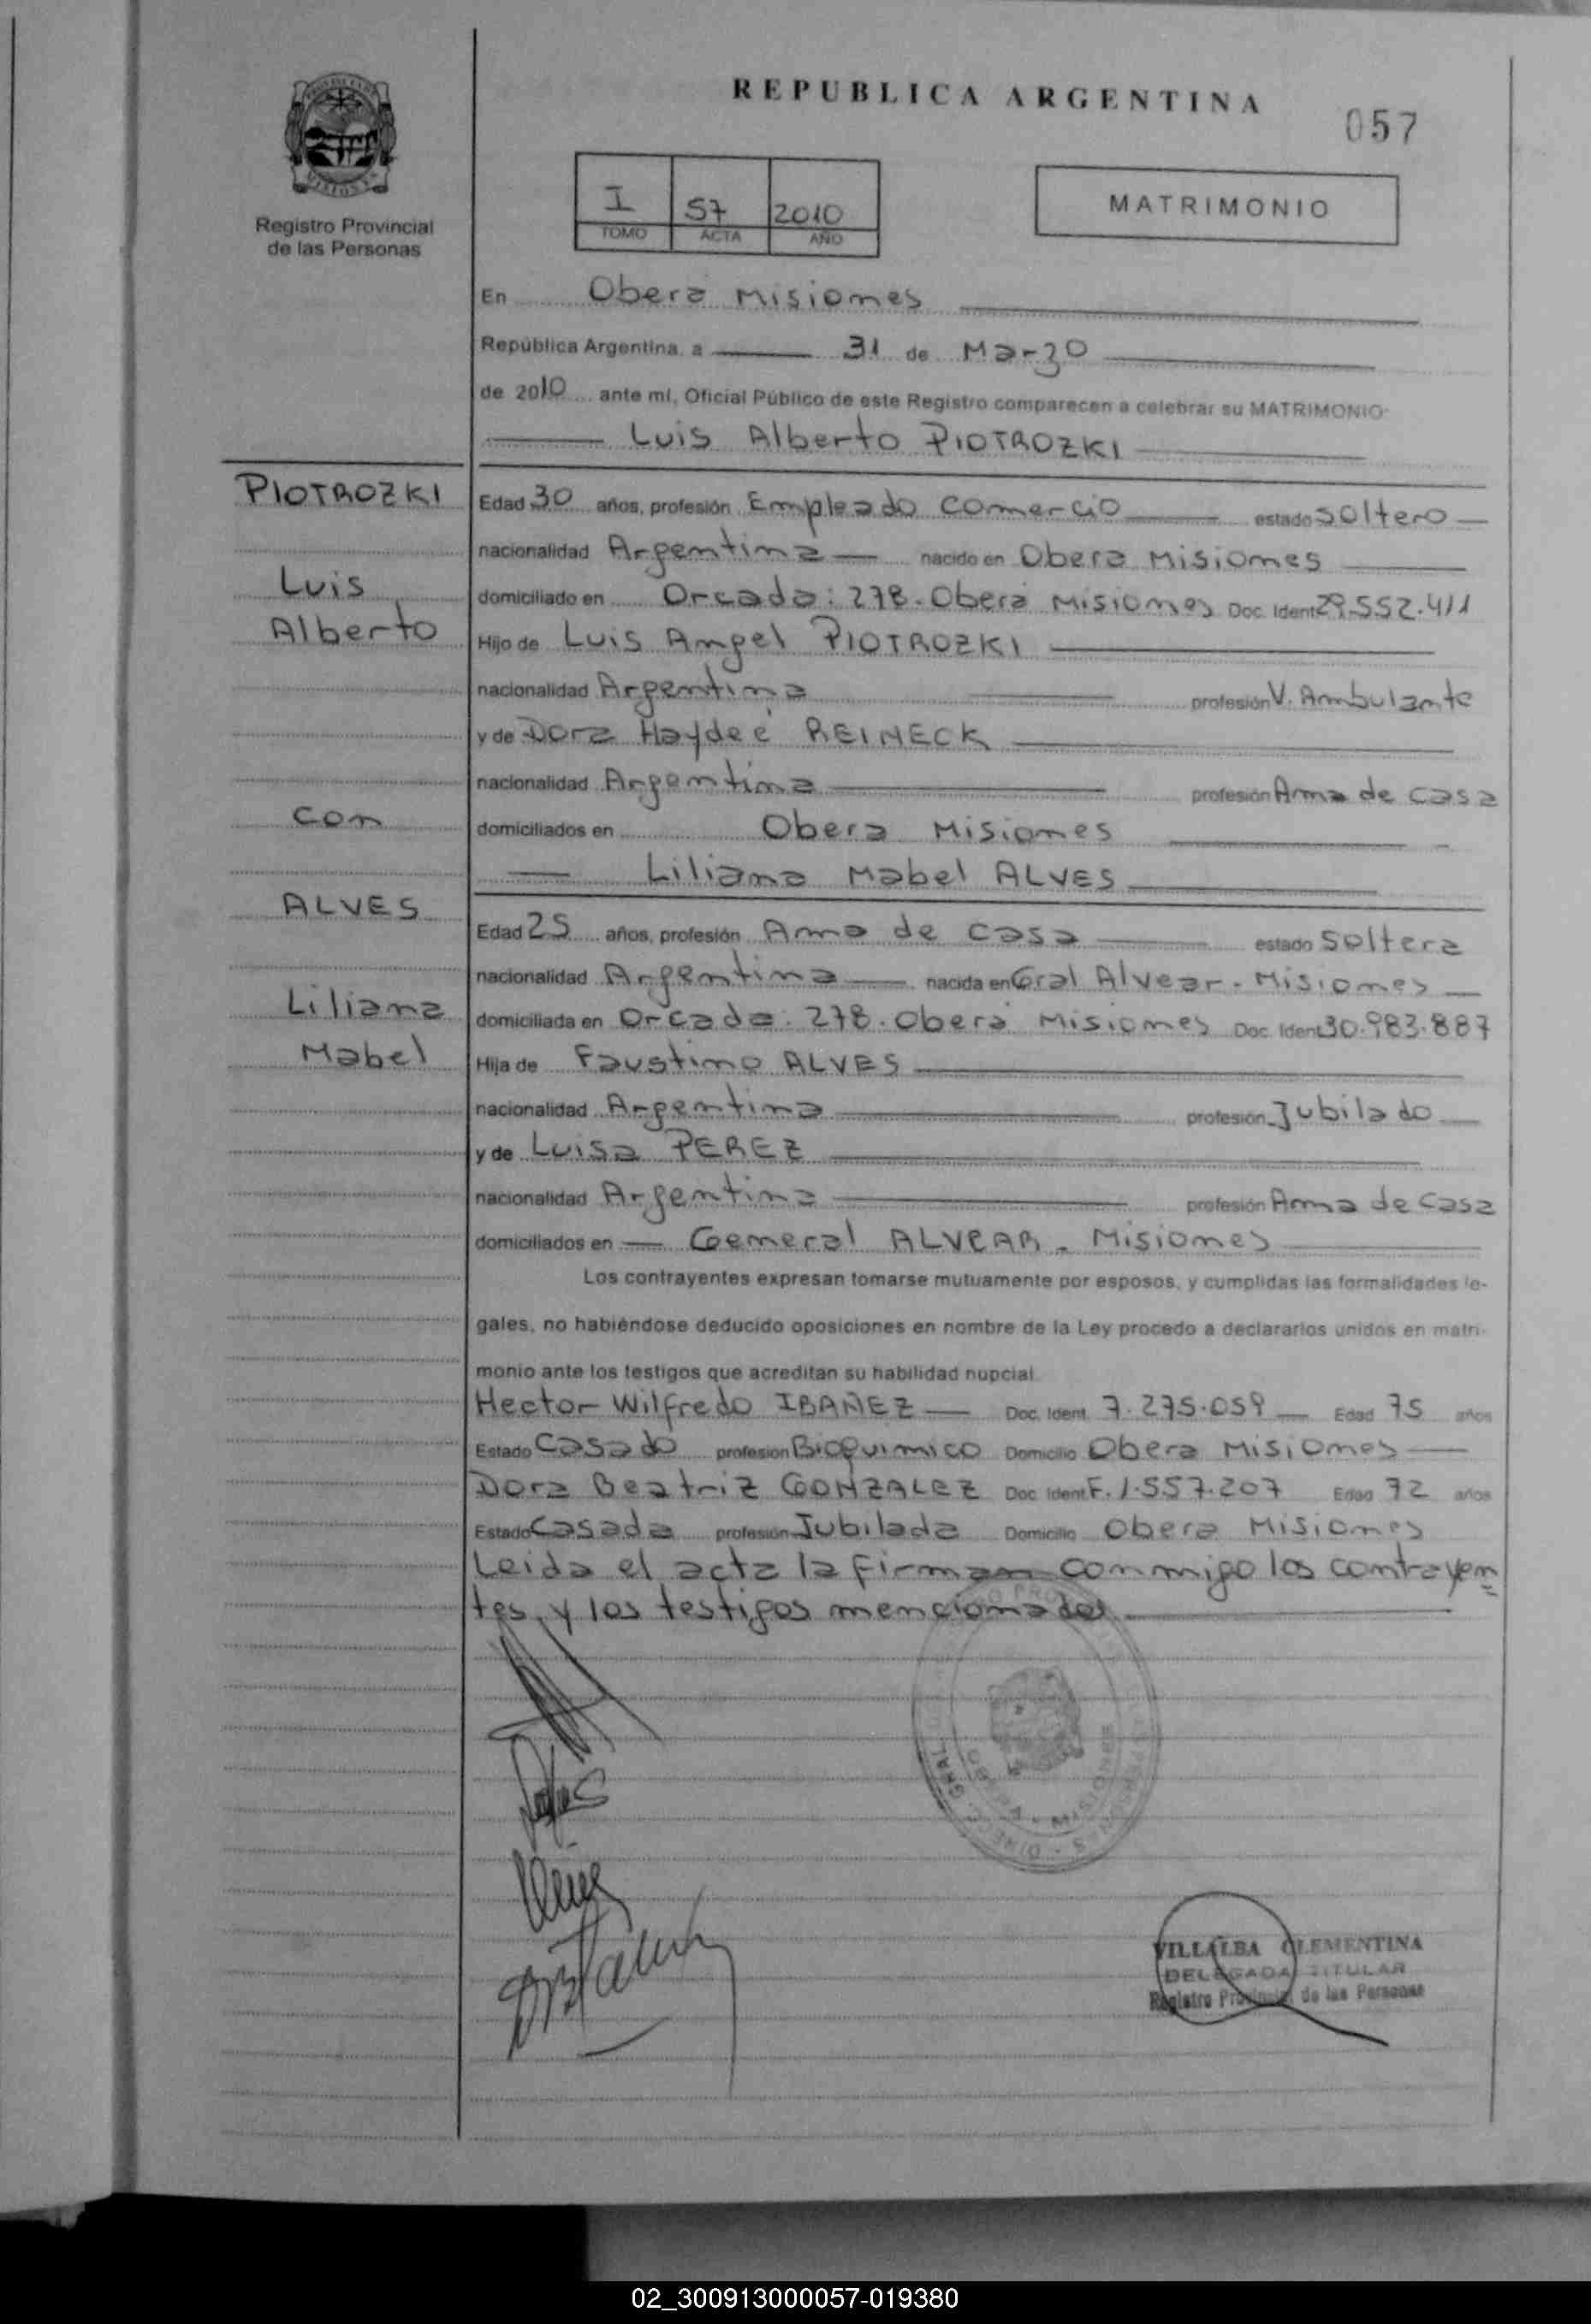 REPUBLICA ARGENTINA
057
MISIONES
Registro Provincial
de las Personas
I 57 2010
TOMO ACTA AÑO
MATRIMONIO
En Obera Misiones
República Argentina, a 31 de Marzo
de 2010 ante mí, Oficial Público de este Registro comparecen a celebrar su MATRIMONIO:
Luis Alberto PIOTROZKI
PIOTROZKI
Luis
Alberto
con
ALVES
Liliana
Mabel
Edad 30 años, profesión Empleado Comercio estado soltero
nacionalidad Argentina nacido en Obera Misiones
domiciliado en Orcada: 278. Oberá Misiones Doc. Ident. 29.552.411
Hijo de Luis Angel PIOTROZKI
nacionalidad Argentina profesión V. Ambulante
y de Dora Haydeé REINECK
nacionalidad Argentina profesión Ama de casa
domiciliados en Obera Misiones
Liliana Mabel ALVES
Edad 25 años, profesión Ama de casa estado soltera
nacionalidad Argentina nacida en Gral Alvear - Misiones
domiciliada en Orcada: 278. Oberá Misiones Doc. Ident. 30.983.887
Hija de Faustino ALVES
nacionalidad Argentina profesión Jubilado
y de Luisa PEREZ
nacionalidad Argentina profesión Ama de casa
domiciliados en General ALVEAR - Misiones
Los contrayentes expresan tomarse mutuamente por esposos, y cumplidas las formalidades le-
gales, no habiéndose deducido oposiciones en nombre de la Ley procedo a declararlos unidos en matri-
monio ante los testigos que acreditan su habilidad nupcial.
Hector Wilfredo IBAÑEZ Doc. Ident. 7.275.059 Edad 75 años
Estado Casado profesión Bioquimico Domicilio Obera Misiones
Dora Beatriz GONZALEZ Doc. Ident. F. 1.557.207 Edad 72 años
Estado Casada profesión Jubilada Domicilio Obera Misiones
Leida el acta la firman conmigo los contrayen
tes, y los testigos mencionados.
VILLALBA CLEMENTINA
DELEGADA TITULAR
Registro Provincial de las Personas
02_300913000057-019380